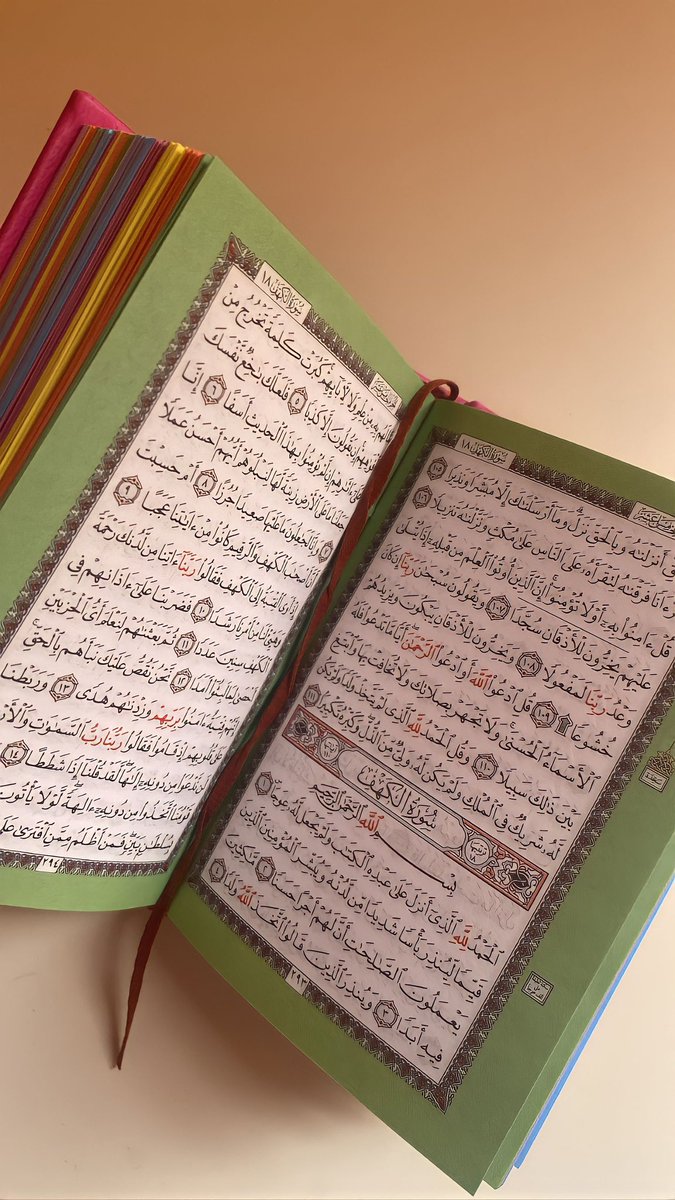 سُورَةُ الكَهْفِ ١٨
أَنزَلْنَٰهُ وَبِٱلْحَقِّ نَزَلَ ۗ وَمَآ أَرْسَلْنَٰكَ إِلَّا مُبَشِّرًا وَنَذِيرًا ١٠٥
فَرَقْنَٰهُ لِتَقْرَأَهُۥ عَلَى ٱلنَّاسِ عَلَىٰ مُكْثٍ وَنَزَّلْنَٰهُ تَنزِيلًا ١٠٦
قُلْ ءَامِنُوا۟ بِهِۦٓ أَوْ لَا تُؤْمِنُوٓا۟ ۚ إِنَّ ٱلَّذِينَ أُوتُوا۟ ٱلْعِلْمَ مِن قَبْلِهِۦٓ إِذَا يُتْلَىٰ
عَلَيْهِمْ يَخِرُّونَ لِلْأَذْقَانِ سُجَّدًا ١٠٧ وَيَقُولُونَ سُبْحَٰنَ رَبِّنَآ إِن كَانَ
وَعْدُ رَبِّنَا لَمَفْعُولًا ١٠٨ وَيَخِرُّونَ لِلْأَذْقَانِ يَبْكُونَ وَيَزِيدُهُمْ
خُشُوعًا ۩ ١٠٩ قُلِ ٱدْعُوا۟ ٱللَّهَ أَوِ ٱدْعُوا۟ ٱلرَّحْمَٰنَ ۖ أَيًّا مَّا تَدْعُوا۟ فَلَهُ
ٱلْأَسْمَآءُ ٱلْحُسْنَىٰ ۚ وَلَا تَجْهَرْ بِصَلَاتِكَ وَلَا تُخَافِتْ بِهَا وَٱبْتَغِ
بَيْنَ ذَٰلِكَ سَبِيلًا ١١٠ وَقُلِ ٱلْحَمْدُ لِلَّهِ ٱلَّذِى لَمْ يَتَّخِذْ وَلَدًا وَلَمْ يَكُن
لَّهُۥ شَرِيكٌ فِى ٱلْمُلْكِ وَلَمْ يَكُن لَّهُۥ وَلِىٌّ مِّنَ ٱلذُّلِّ ۖ وَكَبِّرْهُ تَكْبِيرًۢا ١١١
سُورَةُ الكَهْفِ
بِسْمِ ٱللَّهِ ٱلرَّحْمَٰنِ ٱلرَّحِيمِ
ٱلْحَمْدُ لِلَّهِ ٱلَّذِىٓ أَنزَلَ عَلَىٰ عَبْدِهِ ٱلْكِتَٰبَ وَلَمْ يَجْعَل لَّهُۥ عِوَجَاۜ ١
قَيِّمًا لِّيُنذِرَ بَأْسًا شَدِيدًا مِّن لَّدُنْهُ وَيُبَشِّرَ ٱلْمُؤْمِنِينَ ٱلَّذِينَ
يَعْمَلُونَ ٱلصَّٰلِحَٰتِ أَنَّ لَهُمْ أَجْرًا حَسَنًا ٢ مَّٰكِثِينَ
فِيهِ أَبَدًا ٣ وَيُنذِرَ ٱلَّذِينَ قَالُوا۟ ٱتَّخَذَ ٱللَّهُ وَلَدًا ٤
٢٩٣
سُورَةُ الكَهْفِ ١٨
مَّا لَهُم بِهِۦ مِنْ عِلْمٍ وَلَا لِـَٔابَآئِهِمْ ۚ كَبُرَتْ كَلِمَةً تَخْرُجُ مِنْ
أَفْوَٰهِهِمْ ۚ إِن يَقُولُونَ إِلَّا كَذِبًا ٥ فَلَعَلَّكَ بَٰخِعٌ نَّفْسَكَ
عَلَىٰٓ ءَاثَٰرِهِمْ إِن لَّمْ يُؤْمِنُوا۟ بِهَٰذَا ٱلْحَدِيثِ أَسَفًا ٦ إِنَّا
جَعَلْنَا مَا عَلَى ٱلْأَرْضِ زِينَةً لَّهَا لِنَبْلُوَهُمْ أَيُّهُمْ أَحْسَنُ عَمَلًا
٧ وَإِنَّا لَجَٰعِلُونَ مَا عَلَيْهَا صَعِيدًا جُرُزًا ٨ أَمْ حَسِبْتَ
أَنَّ أَصْحَٰبَ ٱلْكَهْفِ وَٱلرَّقِيمِ كَانُوا۟ مِنْ ءَايَٰتِنَا عَجَبًا ٩
إِذْ أَوَى ٱلْفِتْيَةُ إِلَى ٱلْكَهْفِ فَقَالُوا۟ رَبَّنَآ ءَاتِنَا مِن لَّدُنكَ رَحْمَةً
وَهَيِّئْ لَنَا مِنْ أَمْرِنَا رَشَدًا ١٠ فَضَرَبْنَا عَلَىٰٓ ءَاذَانِهِمْ فِى
ٱلْكَهْفِ سِنِينَ عَدَدًا ١١ ثُمَّ بَعَثْنَٰهُمْ لِنَعْلَمَ أَىُّ ٱلْحِزْبَيْنِ
أَحْصَىٰ لِمَا لَبِثُوٓا۟ أَمَدًا ١٢ نَّحْنُ نَقُصُّ عَلَيْكَ نَبَأَهُم بِٱلْحَقِّ ۚ
إِنَّهُمْ فِتْيَةٌ ءَامَنُوا۟ بِرَبِّهِمْ وَزِدْنَٰهُمْ هُدًى ١٣ وَرَبَطْنَا
عَلَىٰ قُلُوبِهِمْ إِذْ قَامُوا۟ فَقَالُوا۟ رَبُّنَا رَبُّ ٱلسَّمَٰوَٰتِ وَٱلْأَرْضِ
لَن نَّدْعُوَا۟ مِن دُونِهِۦٓ إِلَٰهًا ۖ لَّقَدْ قُلْنَآ إِذًا شَطَطًا ١٤
قَوْمُنَا ٱتَّخَذُوا۟ مِن دُونِهِۦٓ ءَالِهَةً ۖ لَّوْلَا يَأْتُونَ
بِسُلْطَٰنٍۭ بَيِّنٍ ۖ فَمَنْ أَظْلَمُ مِمَّنِ ٱفْتَرَىٰ عَلَى
٢٩٤